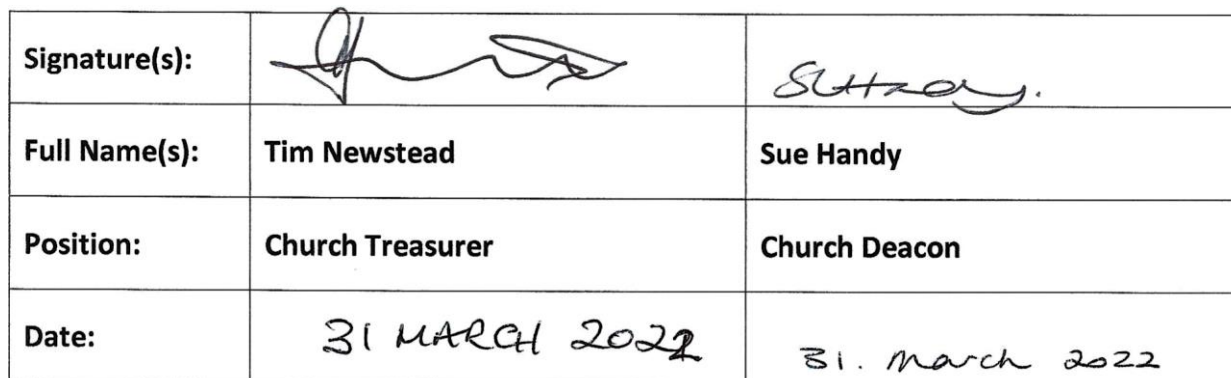 Signature(s): SHandy.
Full Name(s): Tim Newstead Sue Handy
Position: Church Treasurer Church Deacon
Date: 31 MARCH 2022 31. March 2022